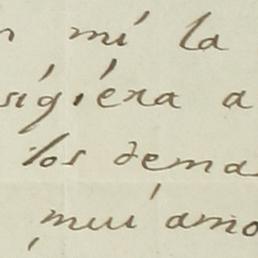 n mí la
sígíera a
los dema
muí amo